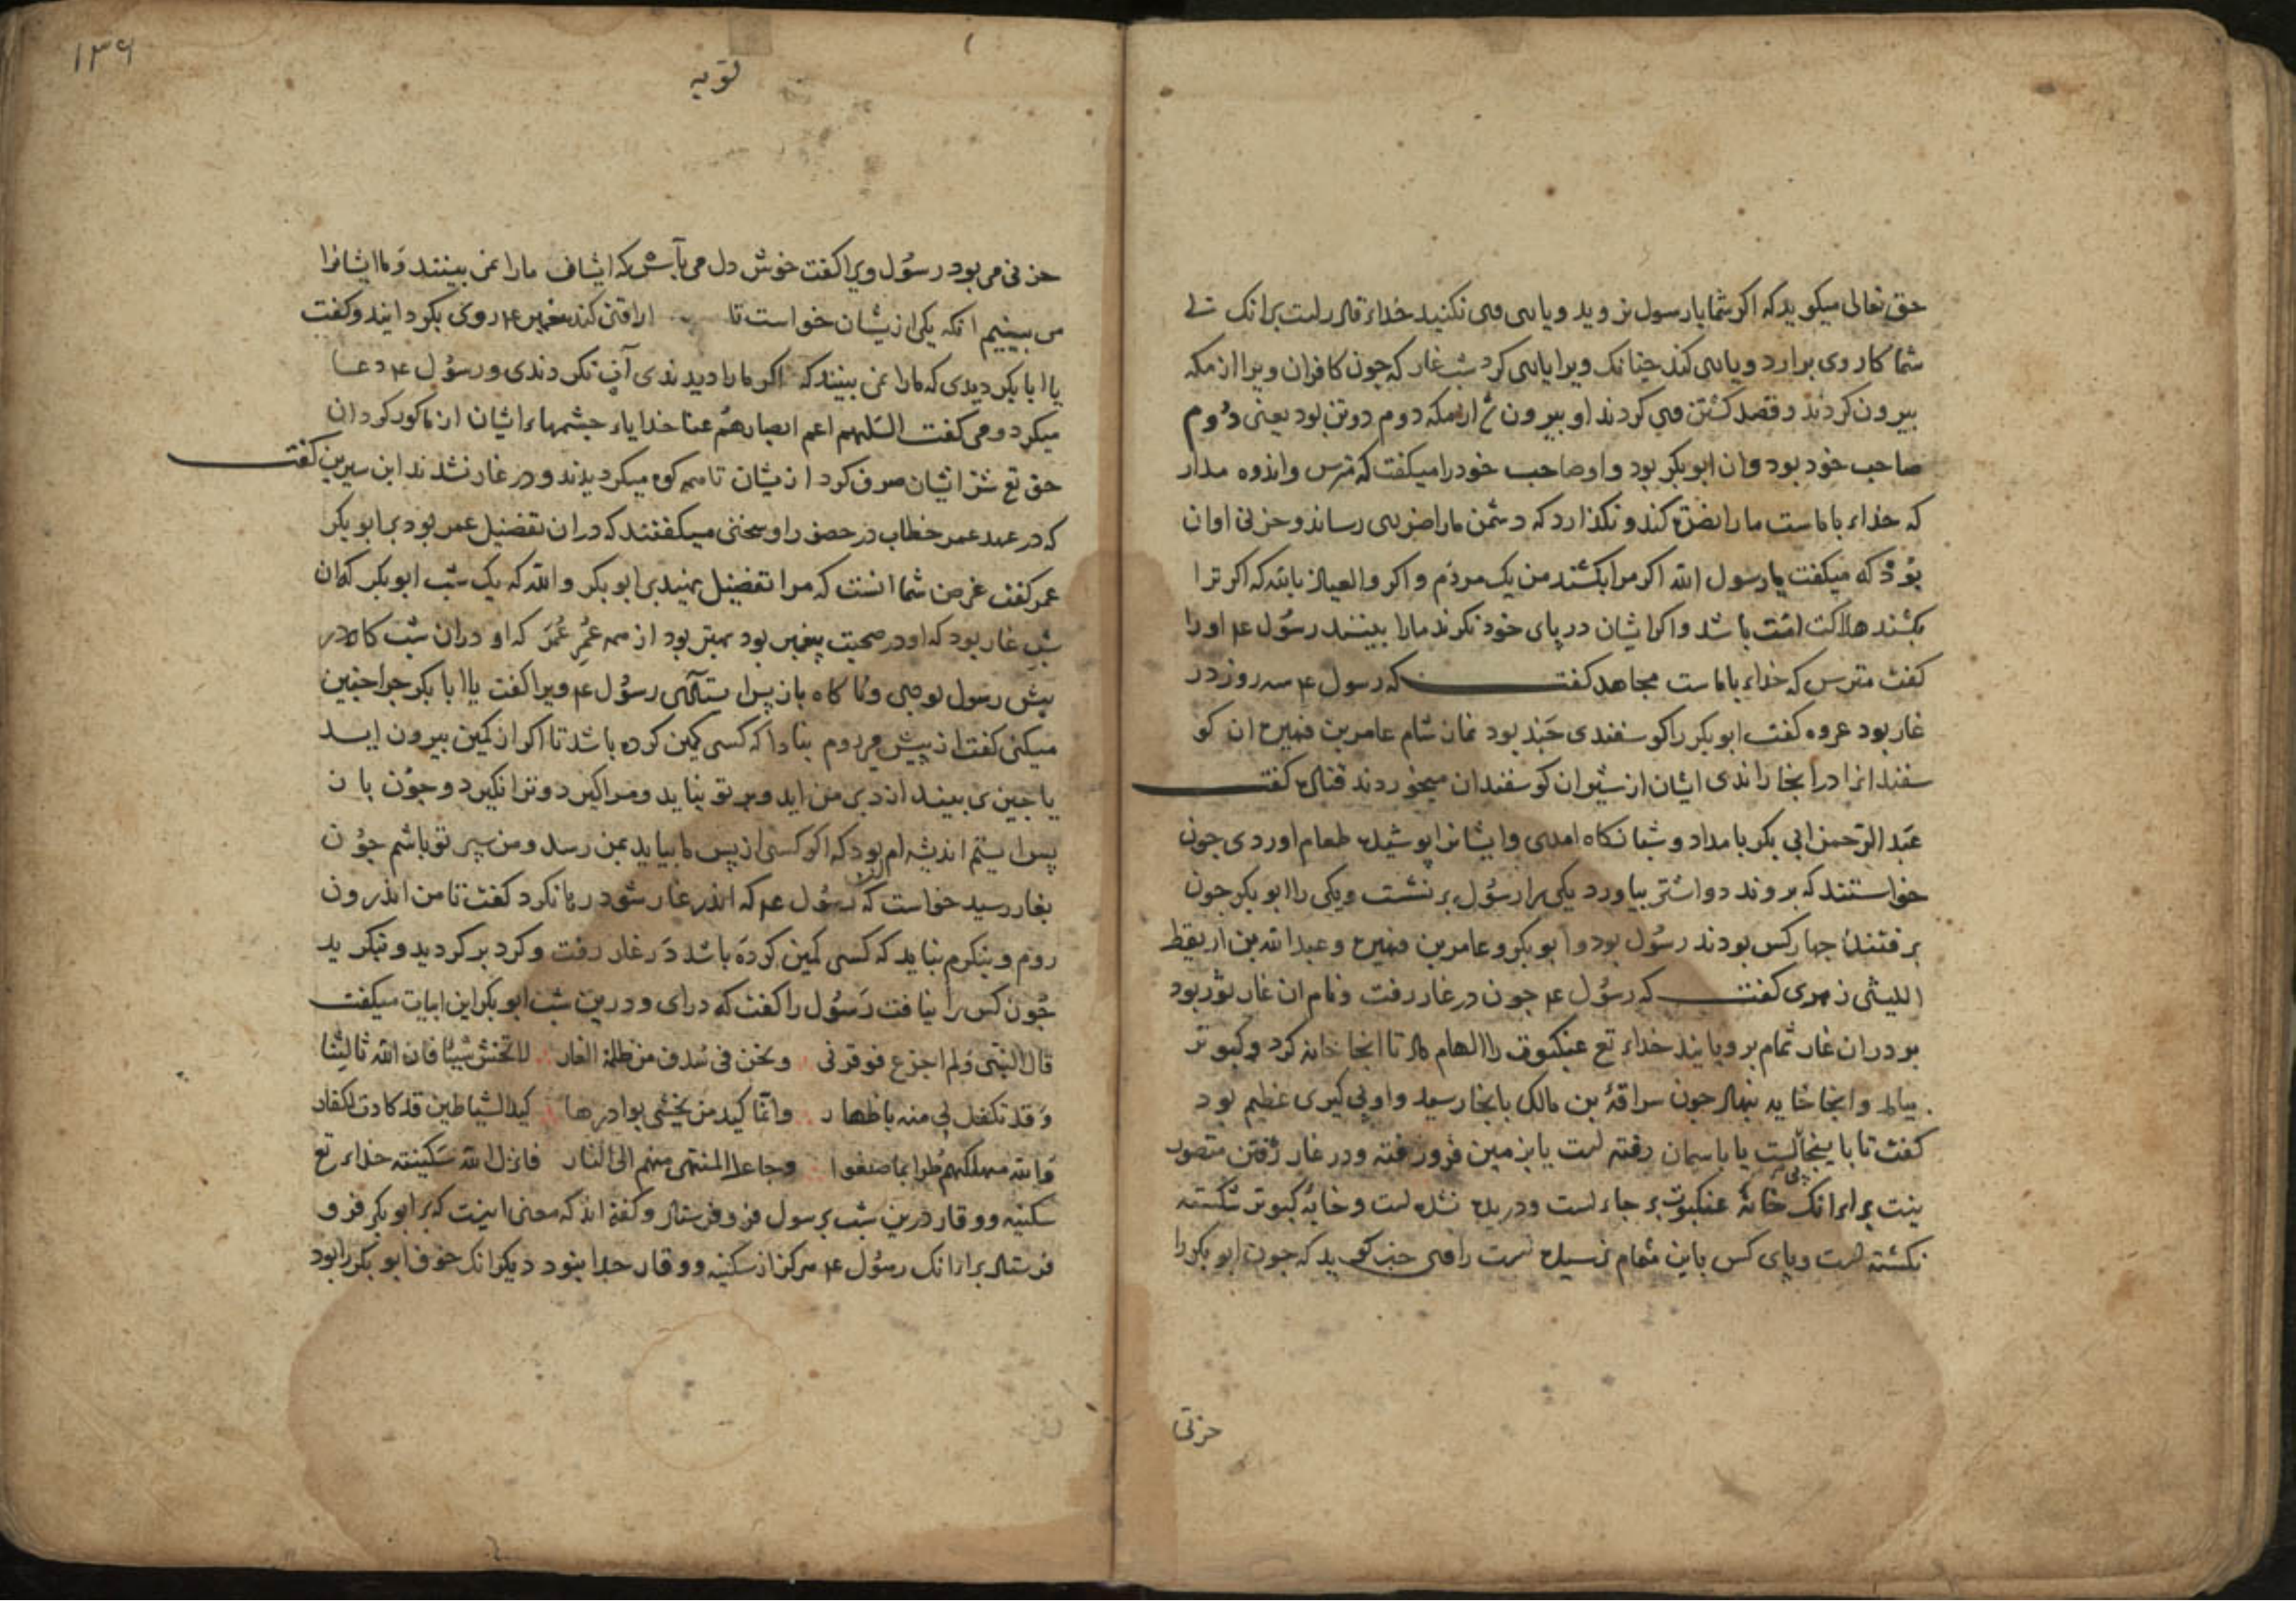 حق تعالی میکوید که اکر شما با رسول نروید و یاری وی نکنید خداء قادر است برانک بی
شما کار وی برارد و یاری کند چنانک ویرا یاری کرد شب غار که چون کافران ویرا از مکه
بیرون کردند و قصد کشتن وی کردند او بیرون از مکه دوم دوتن بود یعنی دوم
صاحب خود بود وان ابوبکر بود و او صاحب خود را میکفت که مترس و اندوه مدار
که خداء با ماست ما را نصرة کند و نکذارد که دشمن ما را ضرری رساند و حزن او ان
بود که میکفت یا رسول الله اکر مرا بکشند من یک مردم و اکر والعیاذ بالله که اکر ترا
بکشند هلاکت امت باشد و اکر ایشان در پای خود نکرند ما را ببینند رسول ع اورا
کفت مترس که خداء با ماست مجاهد کفت که رسول ع سه روز در
غار بود عروه کفت ابوبکر را کوسفندی چند بود نماز شام عامر بن فهیره ان کو
سفند انرا در انجا راندی ایشان از شیر ان کوسفندان میخوردند قتاده کفت
عبد الرحمن ابی بکر بامداد و شبانکاه امدی و ایشانرا پوشیده طعام اوردی چون
خواستند که بروند دو اشتر بیاورد یکی را رسول بر نشست و یکی را ابوبکر چون
برفتند چهار کس بودند رسول بود و ابوبکر و عامر بن فهیره و عبد الله بن اریقط
اللیثی زهری کفت که رسول ع چون در غار رفت و نام ان غار ثور بود
بر در ان غار ثمام برویانید خداء تع عنکبوت را الهام داد تا انجا خانه کرد و کبوتر
بیامد و انجا خایه بنهاد چون سراقة بن مالک بانجا رسید و او پی کیری عظیم بود
کفت تا باینجاست یا باسمان رفته است یا بزمین فرو رفته و در غار رفتن متصور
نیست برای انک خانهٔ عنکبوت بر جاء است و دریده نشده است و خایهٔ کبوتر شکسته
نکشته است و پای کس باین مقام نرسیده است راوی خبر کوید که چون ابوبکر را
حزنی
۱۳۶
توبه
حزنی می بود رسول ویرا کفت خوش دل می باش که ایشان ما را نمی بینند و ما ایشانرا
می بینیم انکه یکی از یشان خواست تا اراقتی کند پیغمبر ع روی بکردانید و کفت
یا ابا بکر دیدی که ما را نمی بینند که اکر ما را دیدندی آن نکردندی و رسول ع دعا
میکرد و می کفت اللهم اعم ابصارهم عنا خدایا چشمهاء ایشان از ما کور کردان
حق تع شر ایشان صرف کرد از یشان تا همه کوه میکردیدند و در غار نشدند ابن سیرین کفت
که در عهد عمر خطاب در حضور او سخنی میکفتند که در ان تفضیل عمر بود بر ابوبکر
عمر کفت غرض شما انست که مرا تفضیل نهید بر ابوبکر والله که یک شب ابوبکر که ان
شب غار بود که او در صحبت پیغمبر بود بهتر بود از همه عمر عمر که او دران شب کاه در
پیش رسول بودی و کاه باز پس ایستادی رسول ع ویرا کفت یا ابا بکر چرا چنین
میکنی کفت از پیش میروم نبادا که کسی کمین کرده باشد تا اکر از کمین بیرون اید
یا چیزی بیند اندر من اید و بر تو نیاید و مرا کیرد و ترا نکیرد و چون باز
پس ایستم اندیشه ام بود که اکر کسی از پس ما بیاید بمن رسد و من سپر تو باشم چون
بغار رسید خواست که رسول ع که اندر غار شود رها نکرد کفت تا من اندرون
روم و بنکرم نباید که کسی کمین کرده باشد در غار رفت و کرد بر کردید و بنکرید
چون کس را نیافت رسول را کفت که درای و درین شب ابوبکر این ابیات میکفت
قال النبی ولم اجزع فوقرنی ونحن فی سدف من ظلمة الغار لا تخش شیئا فان الله ثالثنا
وقد تکفل لی منه باظهار وانما کید من یخشی بوادرها کید الشیاطین قد کادت لکفار
والله مهلکهم طرا بما صنعوا وجاعل المنتهی منهم الی النار فانزل الله سکینته خداء تع
سکینه و وقار درین شب بر رسول فرو فرستاد و کفته اند که معنی اینست که بر ابوبکر فرو
فرستاد برای انک رسول ع هرکز از سکینه و وقار جدا نبود دیکر انک خوف ابوبکر را بود